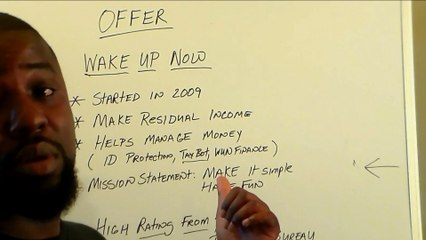 OFFER
WAKE UP NOW
* STARTED IN 2009
* MAKE RESIDUAL INCOME
* HELPS MANAGE MONEY
(ID PROTECTION, TAXBOT, WUN FINANCE)
* MISSION STATEMENT: MAKE IT SIMPLE
HAVE FUN
HIGH RATING FROM
BUREAU